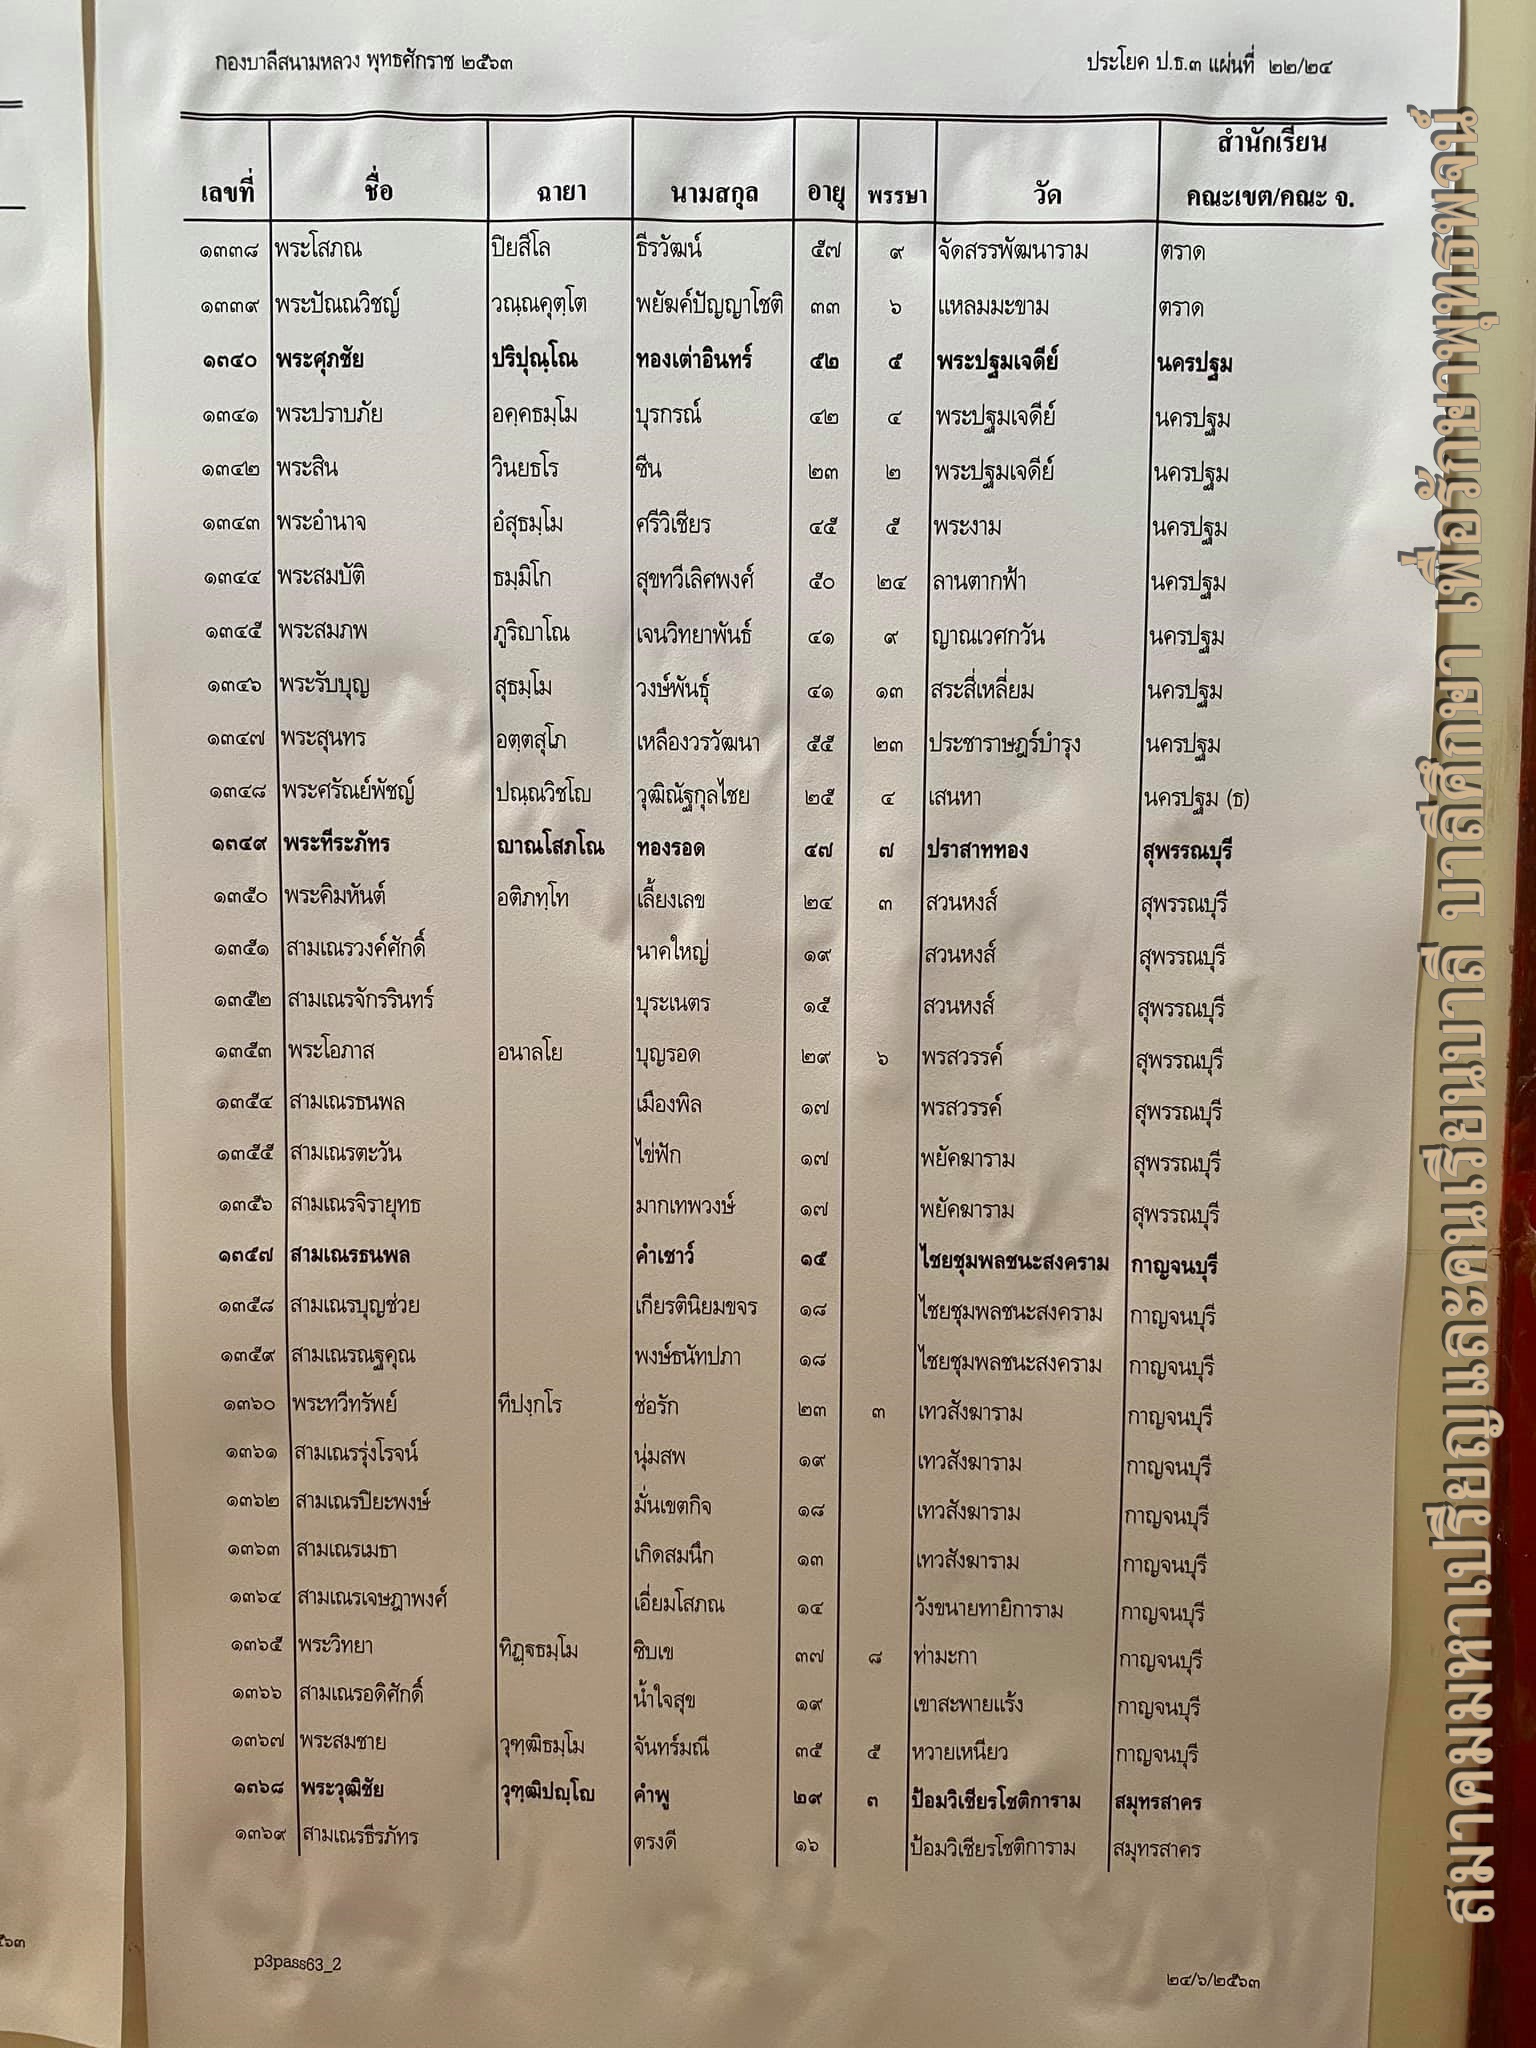 กองบาลีสนามหลวง พุทธศักราช ๒๕๖๓ ประโยค ป.ธ.๓ แผ่นที่ ๒๒/๒๔
เลขที่ ชื่อ ฉายา นามสกุล อายุ พรรษา วัด สำนักเรียน คณะเขต/คณะ จ.
๑๓๓๘ พระโสภณ ปิยสีโล ธีรวัฒน์ ๕๗ ๙ จัดสรรพัฒนาราม ตราด
๑๓๓๙ พระปัณณวิชญ์ วณฺณคุตฺโต พยัฆค์ปัญญาโชติ ๓๓ ๖ แหลมมะขาม ตราด
๑๓๔๐ พระศุภชัย ปริปุณฺโณ ทองเต่าอินทร์ ๕๒ ๕ พระปฐมเจดีย์ นครปฐม
๑๓๔๑ พระปราบภัย อคฺคธมฺโม บุรกรณ์ ๔๒ ๔ พระปฐมเจดีย์ นครปฐม
๑๓๔๒ พระสิน วินยธโร ซีน ๒๓ ๒ พระปฐมเจดีย์ นครปฐม
๑๓๔๓ พระอำนาจ อํสุธมฺโม ศรีวิเชียร ๔๕ ๕ พระงาม นครปฐม
๑๓๔๔ พระสมบัติ ธมฺมิโก สุขทวีเลิศพงศ์ ๕๐ ๒๔ ลานตากฟ้า นครปฐม
๑๓๔๕ พระสมภพ ภูริญาโณ เจนวิทยาพันธ์ ๔๑ ๙ ญาณเวศกวัน นครปฐม
๑๓๔๖ พระรับบุญ สุธมฺโม วงษ์พันธุ์ ๔๑ ๑๓ สระสี่เหลี่ยม นครปฐม
๑๓๔๗ พระสุนทร อตฺตสุโภ เหลืองวรวัฒนา ๕๕ ๒๓ ประชาราษฎร์บำรุง นครปฐม
๑๓๔๘ พระศรัณย์พัชญ์ ปณฺณวิชโญ วุฒิณัฐกุลไชย ๒๕ ๔ เสนหา นครปฐม (ธ)
๑๓๔๙ พระทีระภัทร ญาณโสภโณ ทองรอด ๔๗ ๗ ปราสาททอง สุพรรณบุรี
๑๓๕๐ พระคิมหันต์ อติภทฺโท เลี้ยงเลข ๒๔ ๓ สวนหงส์ สุพรรณบุรี
๑๓๕๑ สามเณรวงค์ศักดิ์ นาคใหญ่ ๑๙ สวนหงส์ สุพรรณบุรี
๑๓๕๒ สามเณรจักรรินทร์ บุระเนตร ๑๕ สวนหงส์ สุพรรณบุรี
๑๓๕๓ พระโอภาส อนาลโย บุญรอด ๒๙ ๖ พรสวรรค์ สุพรรณบุรี
๑๓๕๔ สามเณรธนพล เมืองพิล ๑๗ พรสวรรค์ สุพรรณบุรี
๑๓๕๕ สามเณรตะวัน ไข่ฟัก ๑๗ พยัคฆาราม สุพรรณบุรี
๑๓๕๖ สามเณรจิรายุทธ มากเทพวงษ์ ๑๗ พยัคฆาราม สุพรรณบุรี
๑๓๕๗ สามเณรธนพล คำเชาว์ ๑๕ ไชยชุมพลชนะสงคราม กาญจนบุรี
๑๓๕๘ สามเณรบุญช่วย เกียรตินิยมขจร ๑๘ ไชยชุมพลชนะสงคราม กาญจนบุรี
๑๓๕๙ สามเณรณฐคุณ พงษ์ธนัทปภา ๑๘ ไชยชุมพลชนะสงคราม กาญจนบุรี
๑๓๖๐ พระทวีทรัพย์ ทีปงฺกโร ช่อรัก ๒๓ ๓ เทวสังฆาราม กาญจนบุรี
๑๓๖๑ สามเณรรุ่งโรจน์ นุ่มสพ ๑๙ เทวสังฆาราม กาญจนบุรี
๑๓๖๒ สามเณรปิยะพงษ์ มั่นเขตกิจ ๑๘ เทวสังฆาราม กาญจนบุรี
๑๓๖๓ สามเณรเมธา เกิดสมนึก ๑๓ เทวสังฆาราม กาญจนบุรี
๑๓๖๔ สามเณรเจษฎาพงศ์ เอี่ยมโสภณ ๑๔ วังขนายทายิการาม กาญจนบุรี
๑๓๖๕ พระวิทยา ทิฏฺฐธมฺโม ซิบเข ๓๗ ๘ ท่ามะกา กาญจนบุรี
๑๓๖๖ สามเณรอดิศักดิ์ น้ำใจสุข ๑๙ เขาสะพายแร้ง กาญจนบุรี
๑๓๖๗ พระสมชาย วุฑฺฒิธมฺโม จันทร์มณี ๓๕ ๕ หวายเหนียว กาญจนบุรี
๑๓๖๘ พระวุฒิชัย วุฑฺฒิปญฺโญ คำพู ๒๙ ๓ ป้อมวิเชียรโชติการาม สมุทรสาคร
๑๓๖๙ สามเณรธีรภัทร ตรงดี ๑๖ ป้อมวิเชียรโชติการาม สมุทรสาคร
p3pass63_2 ๒๔/๖/๒๕๖๓
สมาคมมหาเปรียญและคนเรียนบาลี บาลีศึกษา เพื่อรักษาพุทธพจน์